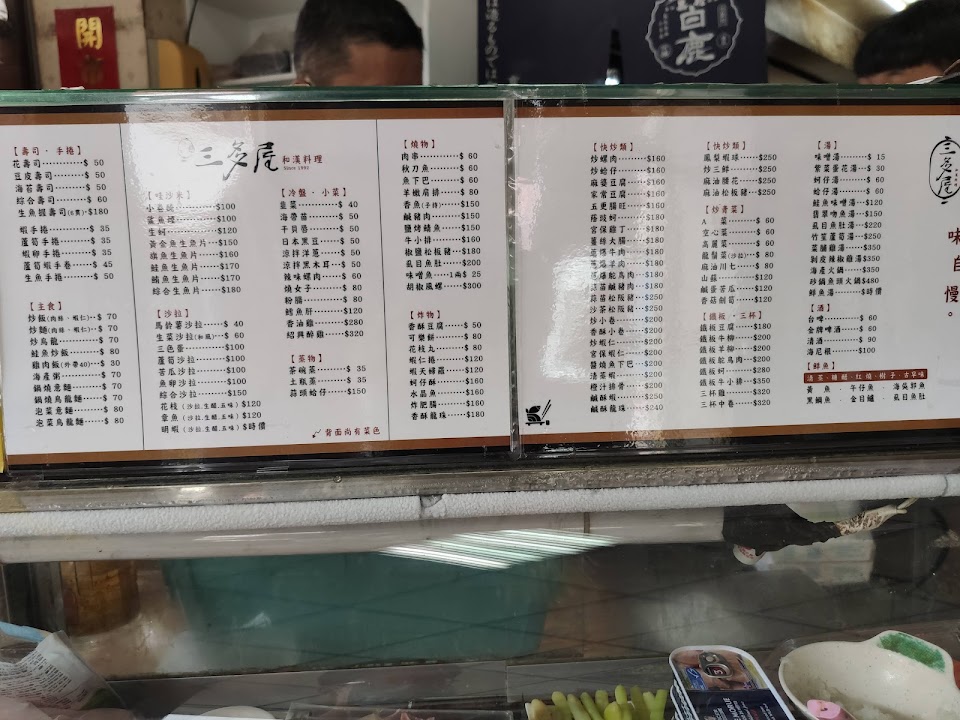 開
寶鹿
三多屋 和漢料理
Since 1992
【壽司·手捲】
花壽司$ 50
豆皮壽司$ 50
海苔壽司$ 50
綜合壽司$ 60
生魚握壽司(6貫)$180
蝦手捲$ 35
蘆筍手捲$ 35
蝦卵手捲$ 35
蘆筍蝦手卷$ 45
生魚手捲$ 50
【主食】
炒飯(肉絲·蝦仁)$ 70
炒麵(肉絲·蝦仁)$ 70
炒烏龍$ 70
鮭魚炒飯$ 80
雞肉飯(外帶40)$ 30
海產粥$ 70
鍋燒意麵$ 70
鍋燒烏龍麵$ 70
泡菜意麵$ 80
泡菜烏龍麵$ 80
小卷$100
鯊魚煙$100
生蚵$120
黃金魚生魚片$150
旗魚生魚片$160
鮭魚生魚片$170
鮪魚生魚片$170
綜合生魚片$180
【沙拉】
馬鈴薯沙拉$ 40
生菜沙拉(和風)$ 60
三色蛋$100
蘆筍沙拉$100
苦瓜沙拉$100
魚卵沙拉$100
綜合沙拉$150
花枝(沙拉,生醋,五味)$120
章魚(沙拉,生醋,五味)$120
明蝦(沙拉,生醋,五味)$時價
【冷盤·小菜】
韭菜$ 40
海帶苗$ 50
干貝唇$ 50
日本黑豆$ 50
涼拌洋蔥$ 50
涼拌黑木耳$ 50
辣味螺肉$ 60
燒女子$ 80
粉腸$ 80
鱈魚肝$120
香油雞$280
紹興醉雞$320
【蒸物】
茶碗蒸$ 35
土瓶蒸$ 35
蒜頭蛤仔$150
背面尚有菜色
【燒物】
肉串$ 60
秋刀魚$ 60
魚下巴$ 60
羊椒肩排$ 80
香魚(子持)$150
鹹豬肉$150
鹽烤鯖魚$150
牛小排$160
椒鹽松板豬$180
虱目魚肚$200
味噌魚1兩$ 25
胡椒風螺$300
【炸物】
香酥豆腐$ 50
可樂餅$ 80
花枝丸$ 80
蝦仁捲$120
蝦天婦羅$120
蚵仔酥$160
水晶魚$160
炸肥腸$160
香酥龍珠$180
【快炒類】
炒螺肉$160
炒蛤仔$160
麻婆豆腐$160
家常豆腐$160
五更腸旺$160
蔭豉蚵$180
宮保雞丁$180
薑絲大腸$180
蔥爆牛肉$180
蔥爆羊肉$180
蔥爆鴕鳥肉$180
蒜苗鹹豬肉$180
蒜苗松阪豬$250
沙茶松阪豬$250
炒小卷$200
香酥小卷$200
炒蝦仁$200
宮保蝦仁$200
醬燒魚下巴$200
清蒸蝦$200
橙汁排骨$200
鹹酥蝦$250
鹹酥龍珠$240
【快炒類】
鳳梨蝦球$250
炒三鮮$250
麻油腰花$250
麻油松板豬$250
【炒青菜】
A 菜$ 60
空心菜$ 60
高麗菜$ 60
龍鬚菜(沙拉)$ 80
麻油川七$ 80
山蘇$120
鹹蛋苦瓜$120
香菇劍筍$120
【鐵板·三杯】
鐵板豆腐$180
鐵板牛柳$200
鐵板羊柳$200
鐵板鴕鳥肉$200
鐵板蚵$280
鐵板牛小排$350
三杯雞$320
三杯中卷$320
【湯】
味噌湯$ 15
紫菜蛋花湯$ 30
蚵仔湯$ 60
蛤仔湯$ 60
鮭魚味噌湯$120
翡翠吻魚湯$150
虱目魚肚湯$220
竹笙蘆筍湯$250
菜脯雞湯$350
剝皮辣椒雞湯$350
海產火鍋$350
砂鍋魚頭火鍋$480
鮮魚湯$時價
【酒】
台啤$ 60
金牌啤酒$ 60
清酒$ 90
海尼根$100
【鮮魚】
清蒸·糖醋·紅燒·樹子·古早味
黃 魚·牛仔魚·海吳郭魚
黑鯛魚·金目鱸·虱目魚肚
三多屋
味自慢。